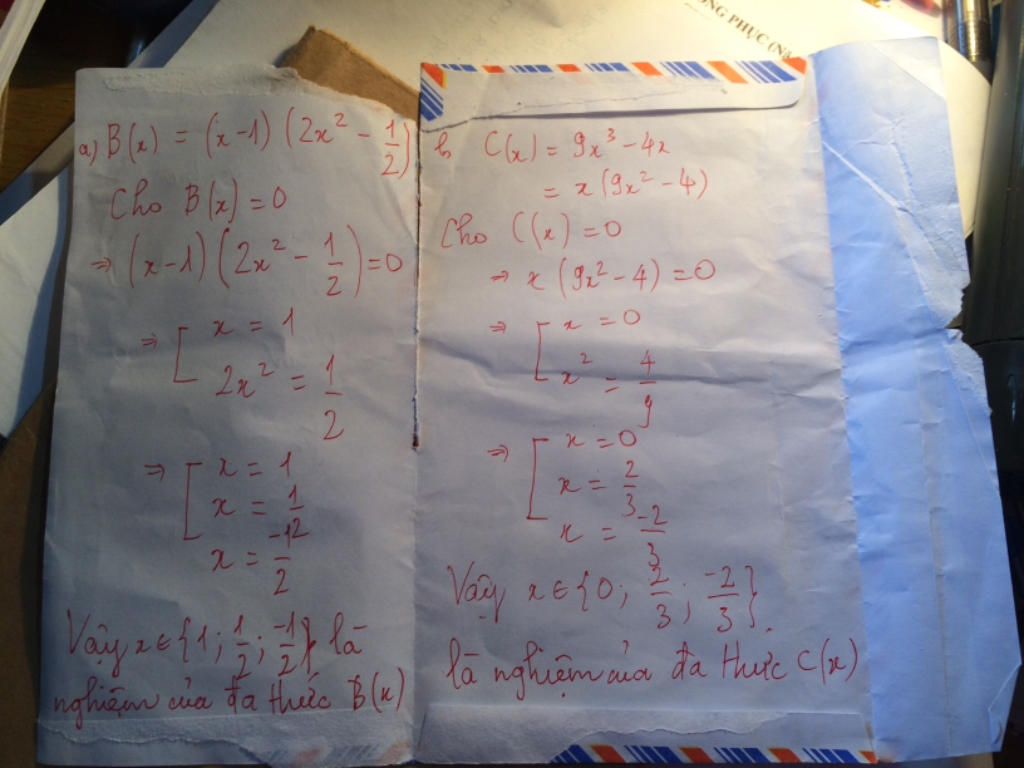 ONG PHỤC (N
a) B(x) = (x-1) (2x² - 1/2)
Cho B(x) = 0
⇒ (x-1) (2x² - 1/2) = 0
⇒ [ x = 1
2x² = 1/2
⇒ [ x = 1
x = 1/2
x = -1/2
Vậy x ∈ {1; 1/2; -1/2} là
nghiệm của đa thức B(x)
b, C(x) = 9x³ - 4x
= x (9x² - 4)
Cho C(x) = 0
⇒ x (9x² - 4) = 0
⇒ [ x = 0
x² = 4/9
⇒ [ x = 0
x = 2/3
x = -2/3
Vậy x ∈ {0; 2/3; -2/3}.
là nghiệm của đa thức C(x)